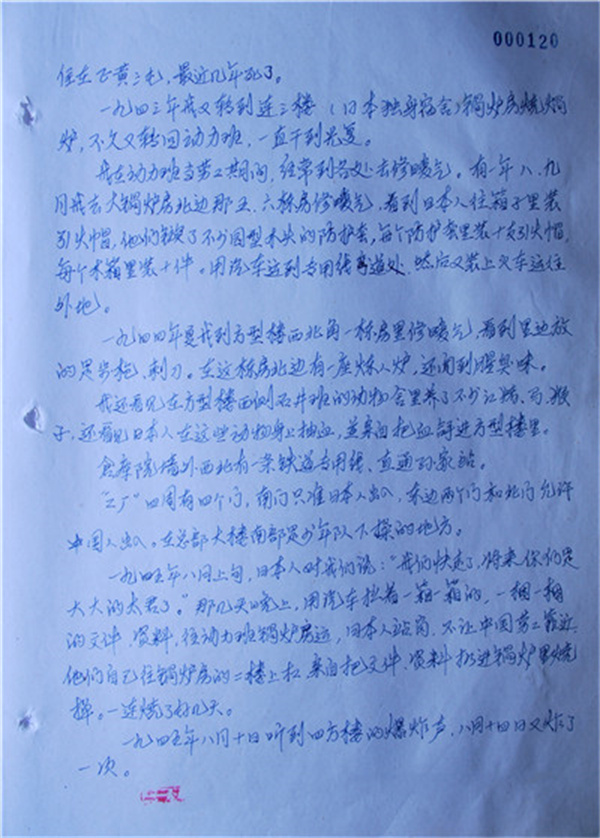 000120
住在正黄三屯，最近几年死了。
一九四三年我又转到连三楼（日本独身宿舍）锅炉房烧锅
炉，不久又转回动力班，一直干到光复。
我在动力班当劳工期间，经常到各处去修暖气。有一年八、九
月我去大锅炉房北边那五、六栋房修暖气，看到日本人往箱子里装
引火帽，他们做了不少园型木头的防护套，每个防护套里装十支引火帽，
每个木箱里装十件。用汽车运到专用线 道处，然后又装上火车运往
外地。
一九四四年是我到方型楼西北角一栋房里修暖气，看到里边放
的是步枪，刺刀。在这栋房北边有一座炼人炉，还闻到腥臭味。
我还看见在方型楼西侧石井班的动物舍里养了不少 马、猴
子，还看见日本人在这些动物身上抽血，并亲自把血 进方型楼里。
仓库院墙外西北有一条铁道专用线，直通孙家站。
“工厂”四周有四个门，南门只准日本人出入，东边两个门和北门允许
中国人出入。在总部大楼南部是少年队下操的地方。
一九四五年八月上旬，日本人对我们说：“我们快走了，将来你们是
大大的太君了。”那几天晚上，用汽车拉着一箱一箱的，一捆一捆
的文件、资料，往动力班锅炉房运，日本人站岗，不让中国劳工靠近，
他们自己往锅炉房的二楼上扛，亲自把文件、资料扔进锅炉里烧
掉。一连烧了好几天。
一九四五年八月十日听到四方楼的爆炸声，八月十四日又炸了
一次。